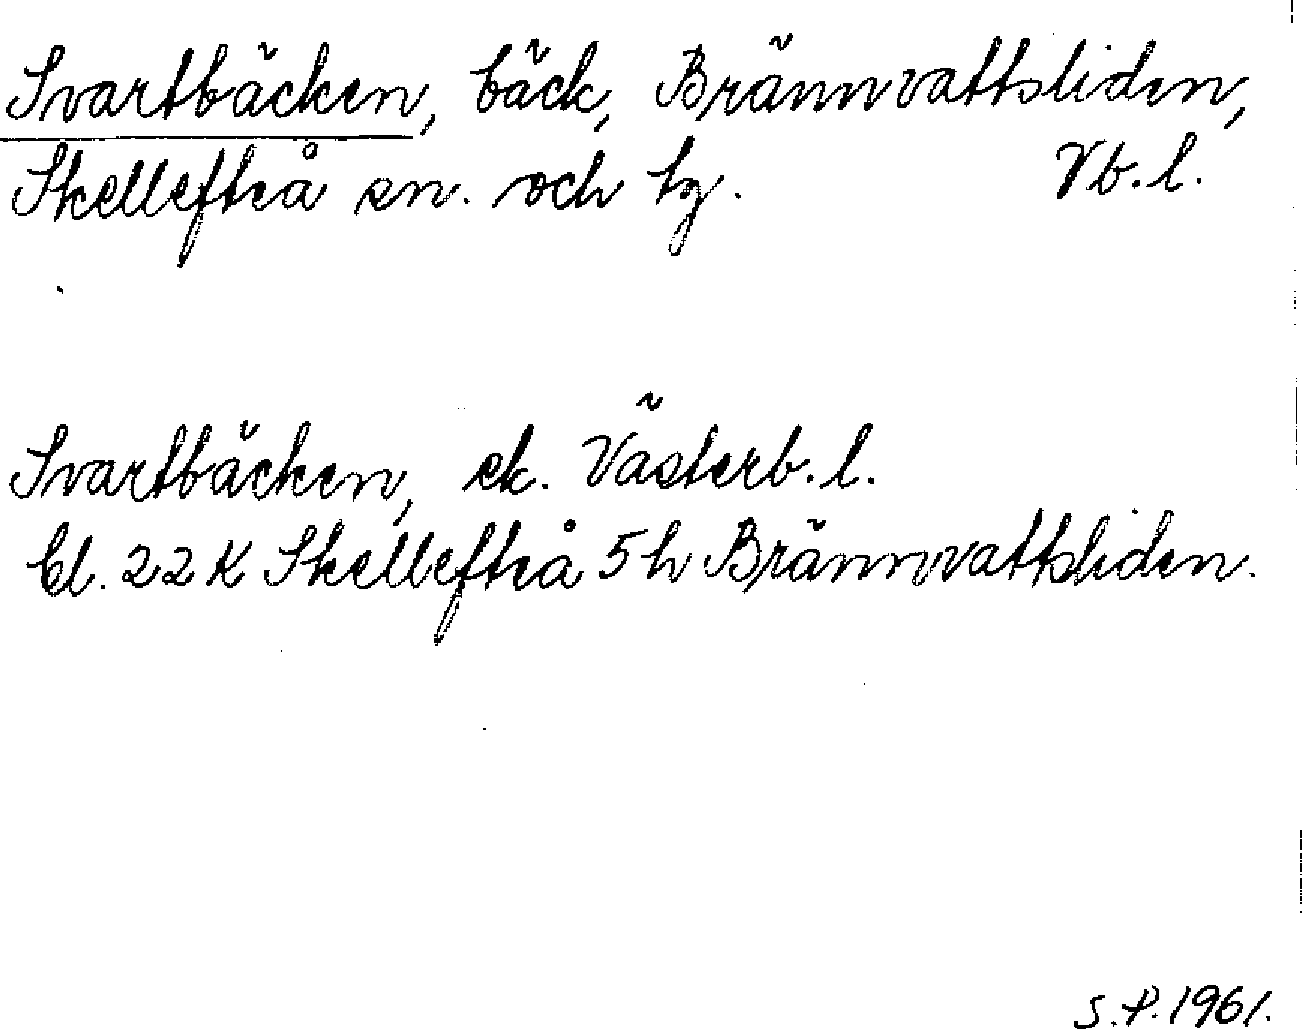 Svartbäcken, bäck, Brännvattsliden,
Skellefteå sn. och tg. Vb.l.
Svartbäcken, ek. Västerb.l.
bl. 22 K Skellefteå 5 h Brännvattsliden.
S.P. 1961.